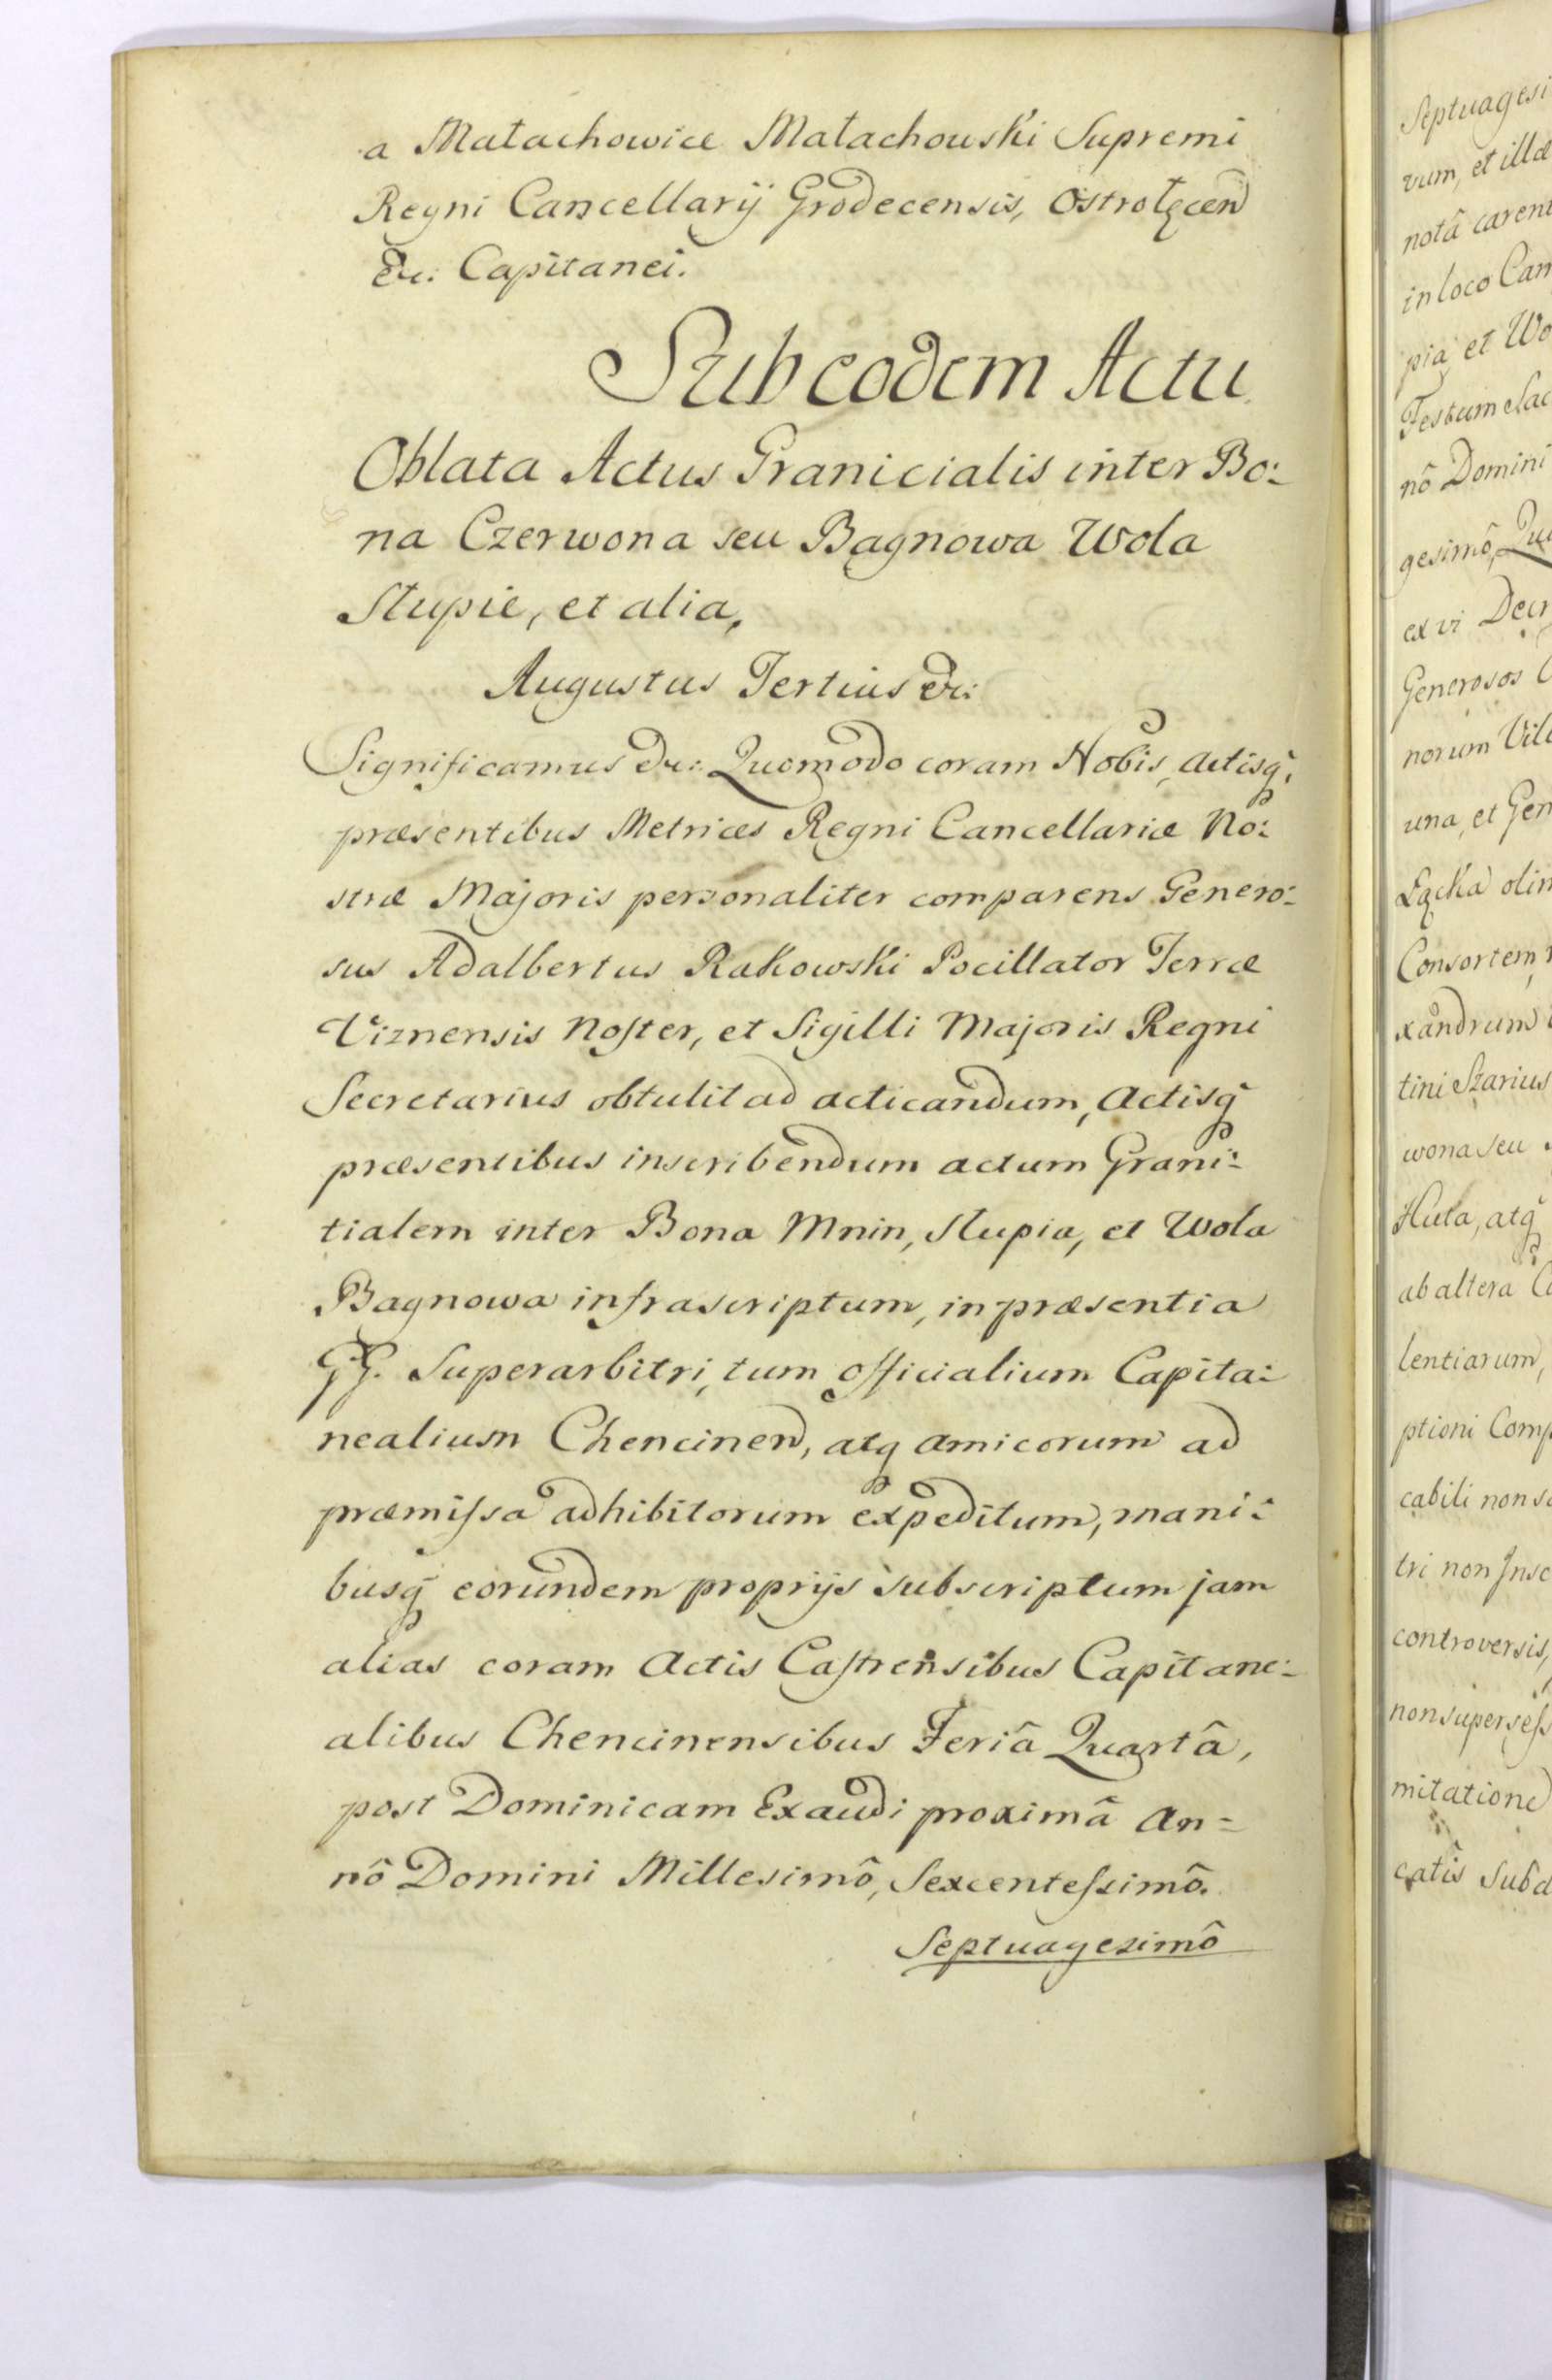 a Małachowice Małachowski Supremi
Regni Cancellarij Grodecensis, Ostrołęcen
&c: Capitanei.
Sub eodem Actu
Oblata Actus Granicialis inter Bo:
na Czerwona seu Bagnowa Wola
Słupie, et alia,
Augustus Tertius &c:
Significamus &c: Quomodo coram Nobis, Actisq̃
præsentibus Metrices Regni Cancellariæ No:
stræ Majoris personaliter comparens Genero:
sus Adalbertus Rakowski Pocillator Terræ
Viznensis Noster, et Sigilli Majoris Regni
Secretarius obtulit ad acticandum, Actisq̃
præsentibus inscribendum actum Grani:
tialem inter Bona Mnin, Słupia, et Wola
Bagnowa infrascriptum, in præsentia
GG. Superarbitri, tum Officialium Capita:
nealium Chencinen, atq̃ amicorum ad
præmissa adhibitorum expeditum, mani:
busq̃ eorundem proprijs subscriptum jam
alias coram Actis Castrensibus Capitane:
alibus Chencinensibus Feriâ Quartâ,
post Dominicam Exaudi proximâ An=
nô Domini Millesimô, Sexcentessimô.
Septuagesimô
Septuagesi
vum, et illæ
notâ carent
in loco Cam
pia et Wo
Festum Sac
nô Domini
gesimô, Qu
ex vi Decr
Generosos
norum Vil
una, et Gen
Łącka olim
Consortem
xandrum
tini Szarius
wona seu
Huta, atq̃
ab altera
lentiarum,
ptioni Comp
cabili non
tri non Insc
controversis,
non supersess
mitatione
catis Subd